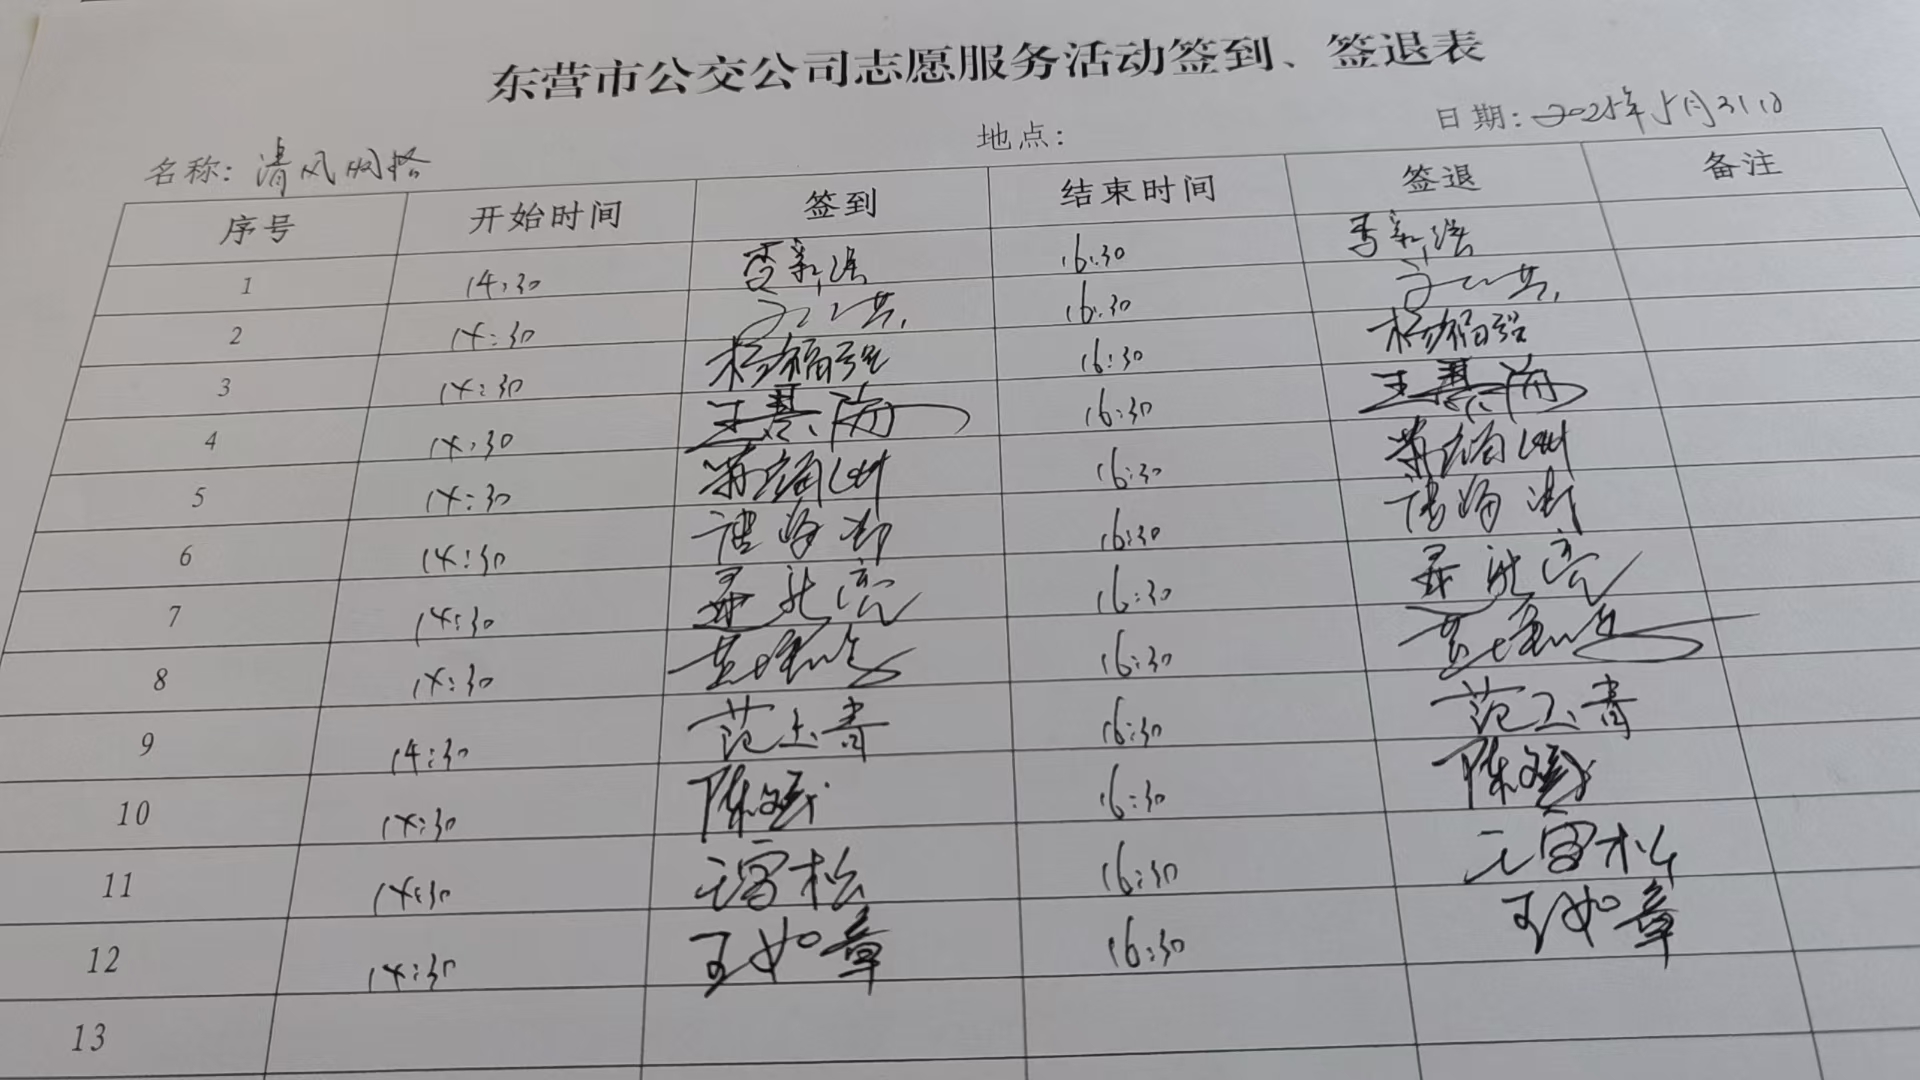 东营市公交公司志愿服务活动签到、签退表
名称: 清风网格 地点: 日期: 2025年5月31日
序号 开始时间 签到 结束时间 签退 备注
1 14:30 李新浩 16:30 李新浩
2 14:30 16:30
3 14:30 杨福强 16:30 杨福强
4 14:30 王 16:30 王
5 14:30 16:30
6 14:30 16:30
7 14:30 16:30
8 14:30 16:30
9 14:30 范玉青 16:30 范玉青
10 14:30 陈 16:30 陈
11 14:30 王富松 16:30 王富松
12 14:30 王如章 16:30 王如章
13